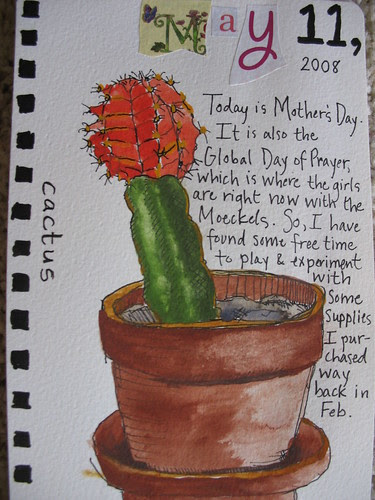 May 11,
2008
Today is Mother's Day.
It is also the
Global Day of Prayer,
which is where the girls
are right now with the
Moeckels. So, I have
found some free time
to play & experiment
with
some
supplies
I pur-
chased
way
back in
Feb.
cactus